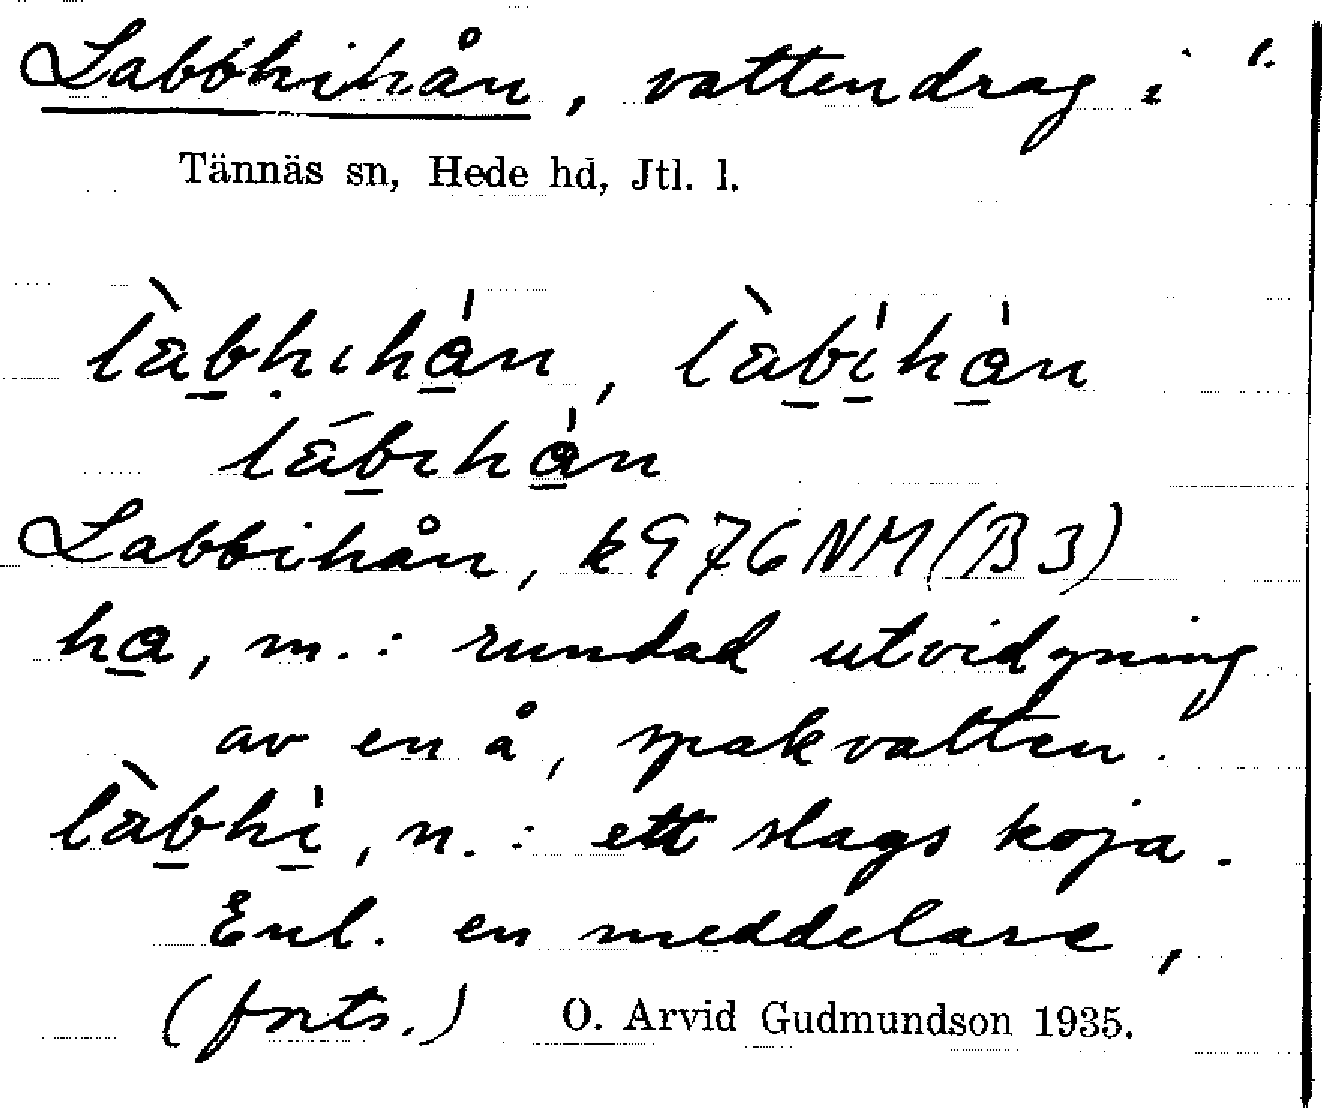 Labbhihån, vattendrag i 1.
Tännäs sn, Hede hd, Jtl. l.
làbhıhån, làbihån
lábıhån
Labbihån, k 976 NM (B 3)
ha, m.: rundad utvidgning
av en å, spakvatten.
làbhi, n.: ett slags koja.
Enl. en meddelare,
(forts.) O. Arvid Gudmundson 1935.